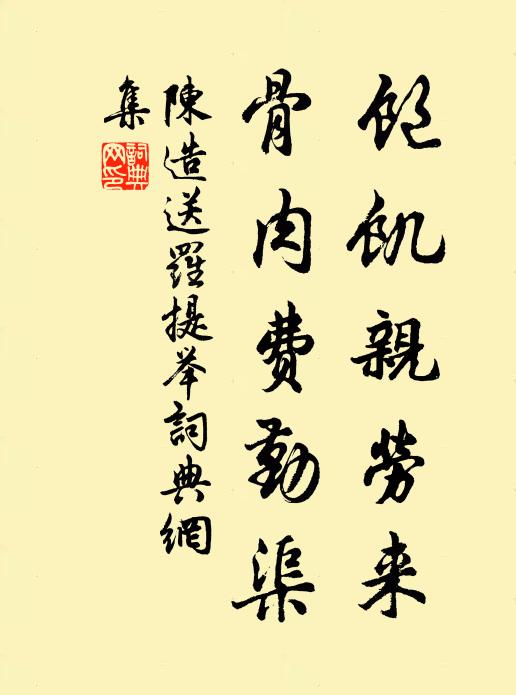 飽飢親勞来
骨肉費勤渠
陳造送羅提举詞典網
集
詞典网印